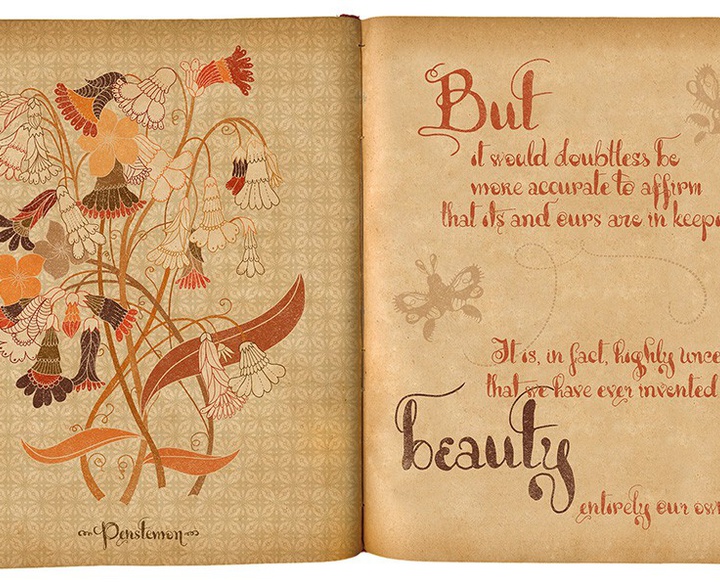 Penstemon
But
it would doubtless be
more accurate to affirm
that its and ours are in
It is, in fact, highly
that we have ever invented
beauty
entirely our